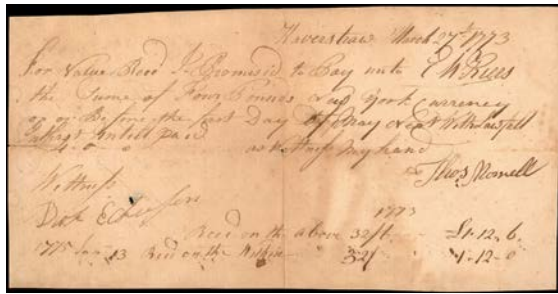 Haverstraw March 27th 1773
For Value Recd I Promised to Pay unto
the Sume of Four Pounds York Currency
on or Before the first Day of May Next With Lawfull
Intrest Untill paid as Witness my hand
4-0-0
Thos
Wittness
Dirk
1773
Recd on the above 32/6 £1-12-6
1775 Jany 13 Recd on the Within 32/ 1-12-0